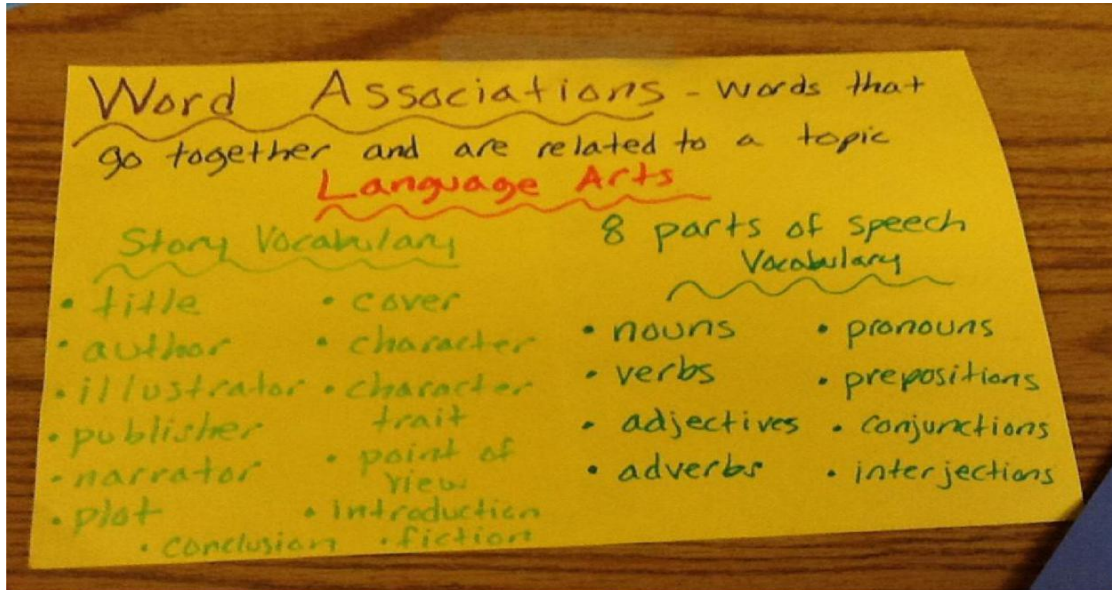 Word Associations - words that
go together and are related to a topic
Language Arts
Story Vocabulary
• title
• author
• illustrator
• publisher
• narrator
• plot
• cover
• character
• character
trait
• point of
view
• Introduction
• conclusion • fiction
8 parts of speech
Vocabulary
• nouns
• verbs
• adjectives
• adverbs
• pronouns
• prepositions
• conjunctions
• interjections